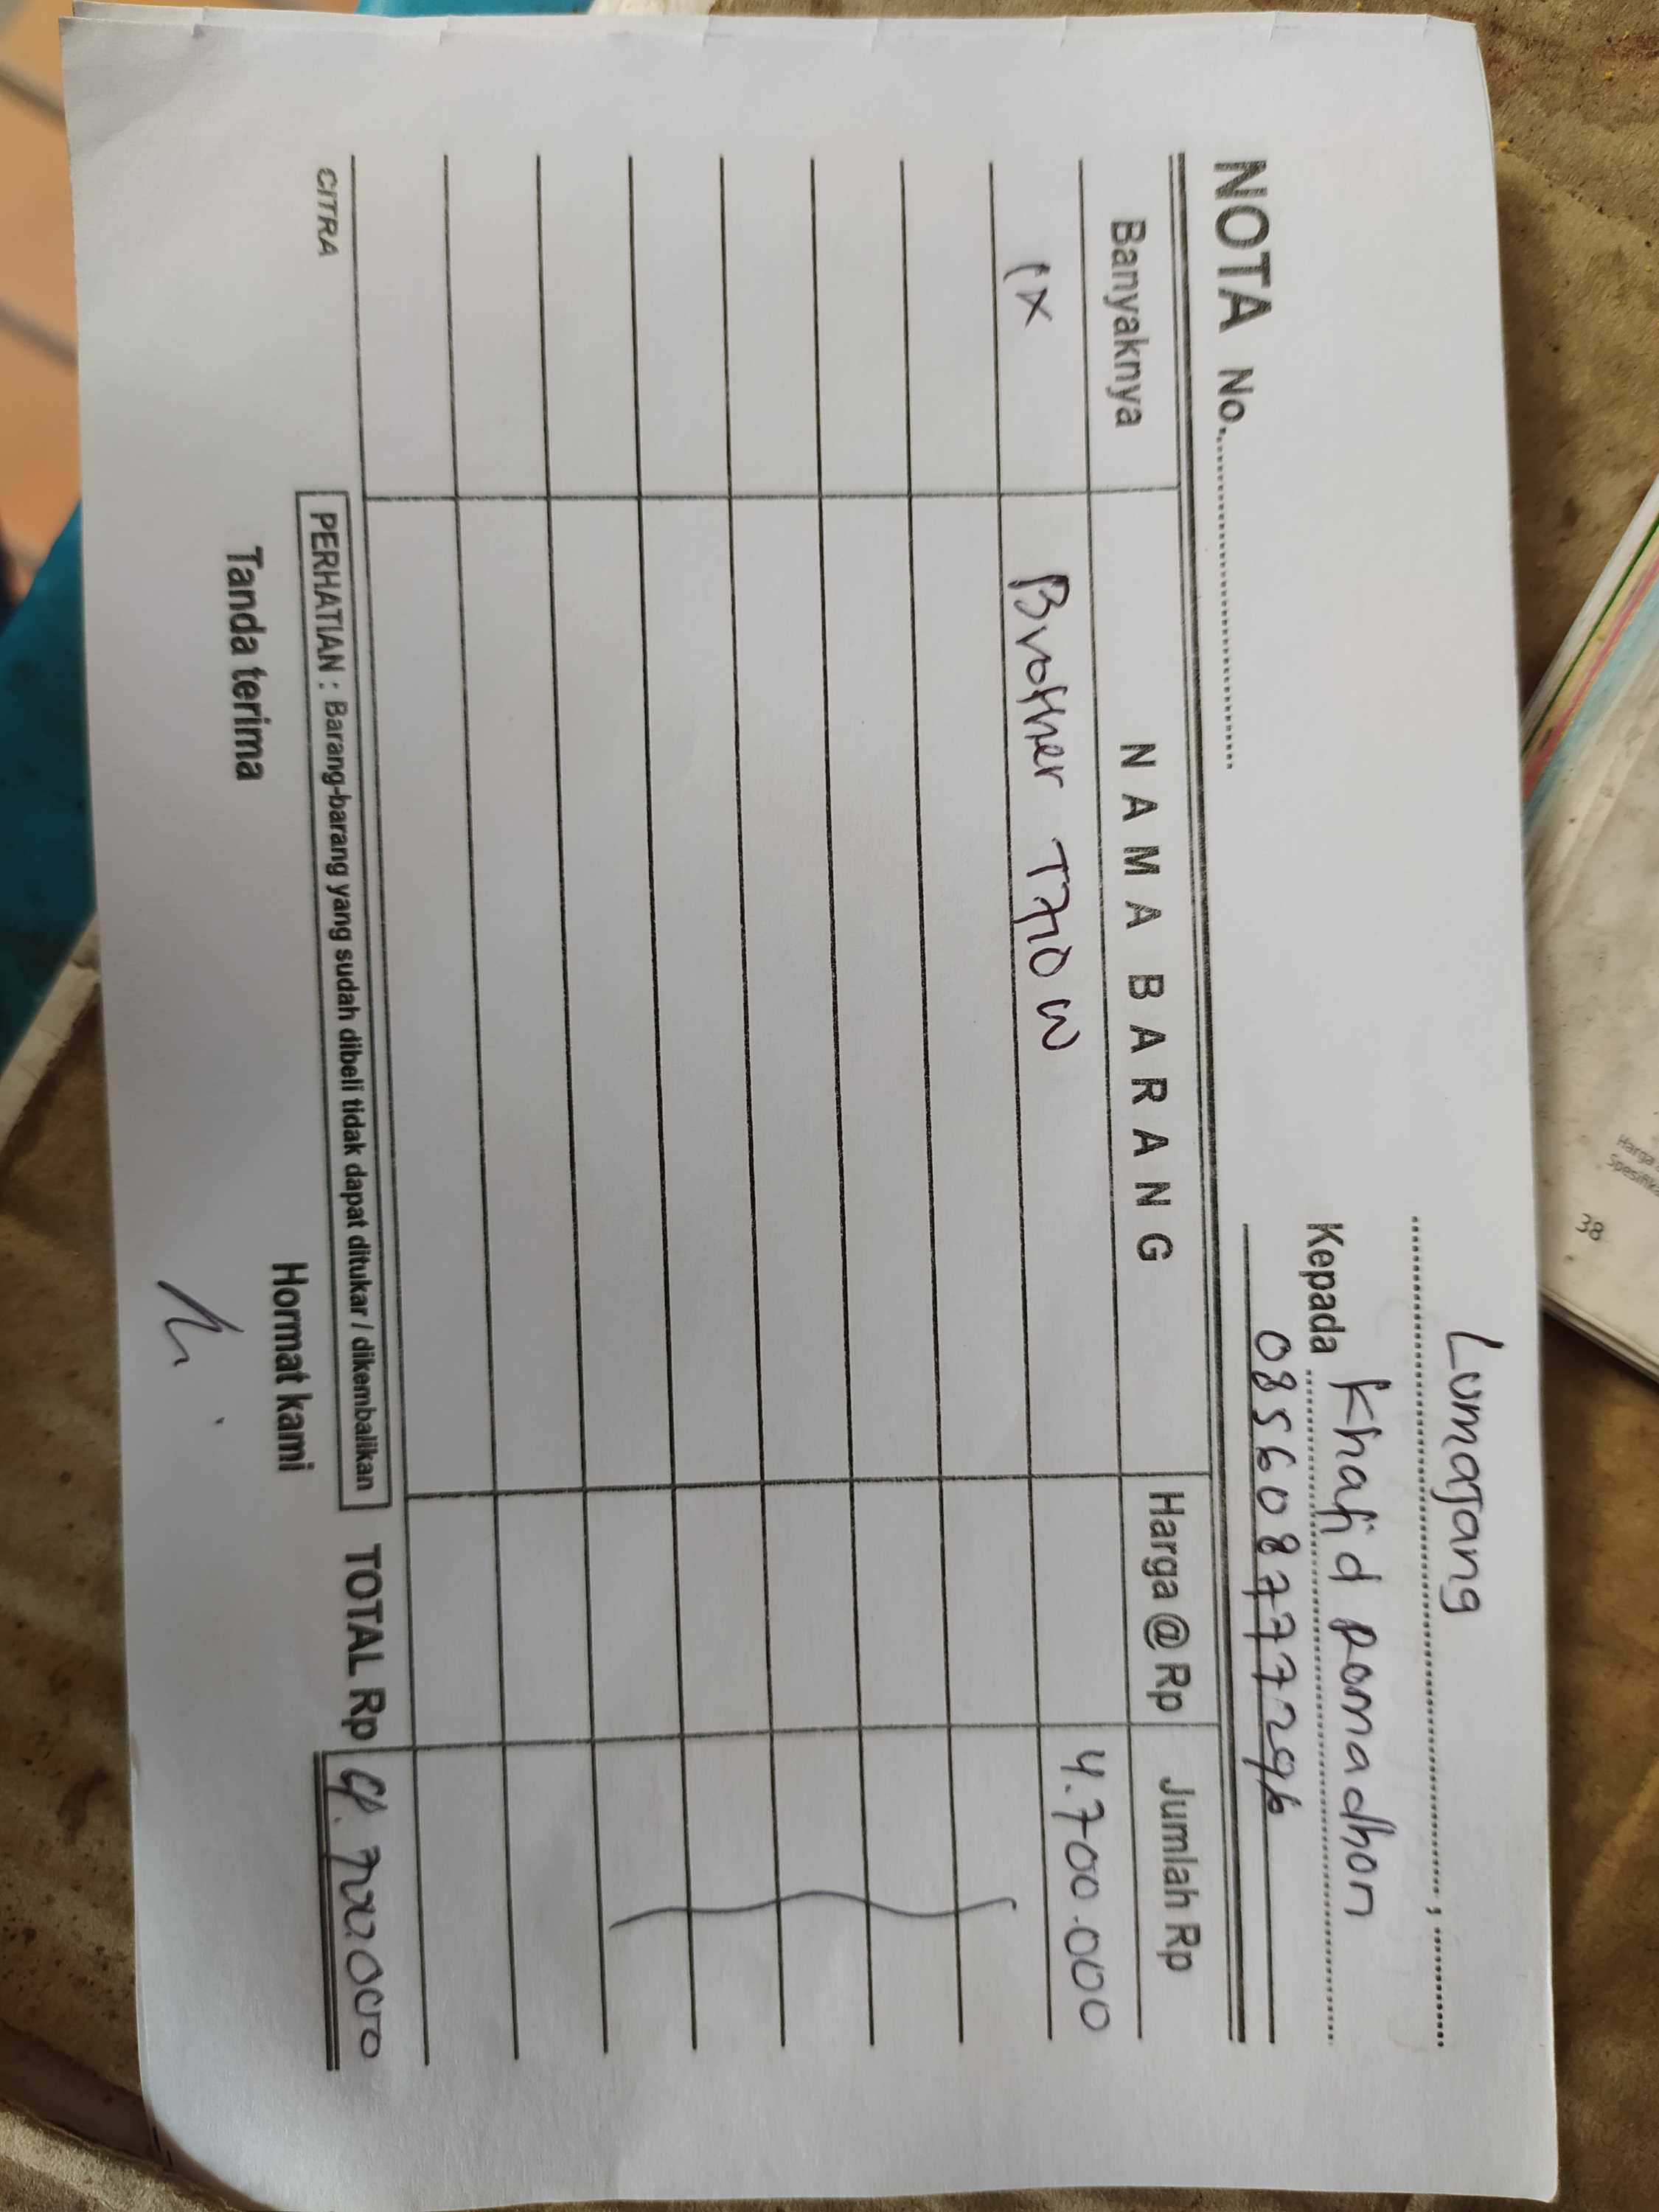 Lumajang
.............................. , ..........
Kepada Khafid Romadhon
NOTA No...............................
085608777296
Banyaknya NAMA BARANG Harga @ Rp Jumlah Rp
1x Brother T710 W 4.700.000
CITRA
PERHATIAN : Barang-barang yang sudah dibeli tidak dapat ditukar / dikembalikan
TOTAL Rp 4.700.000
Tanda terima Hormat kami
38